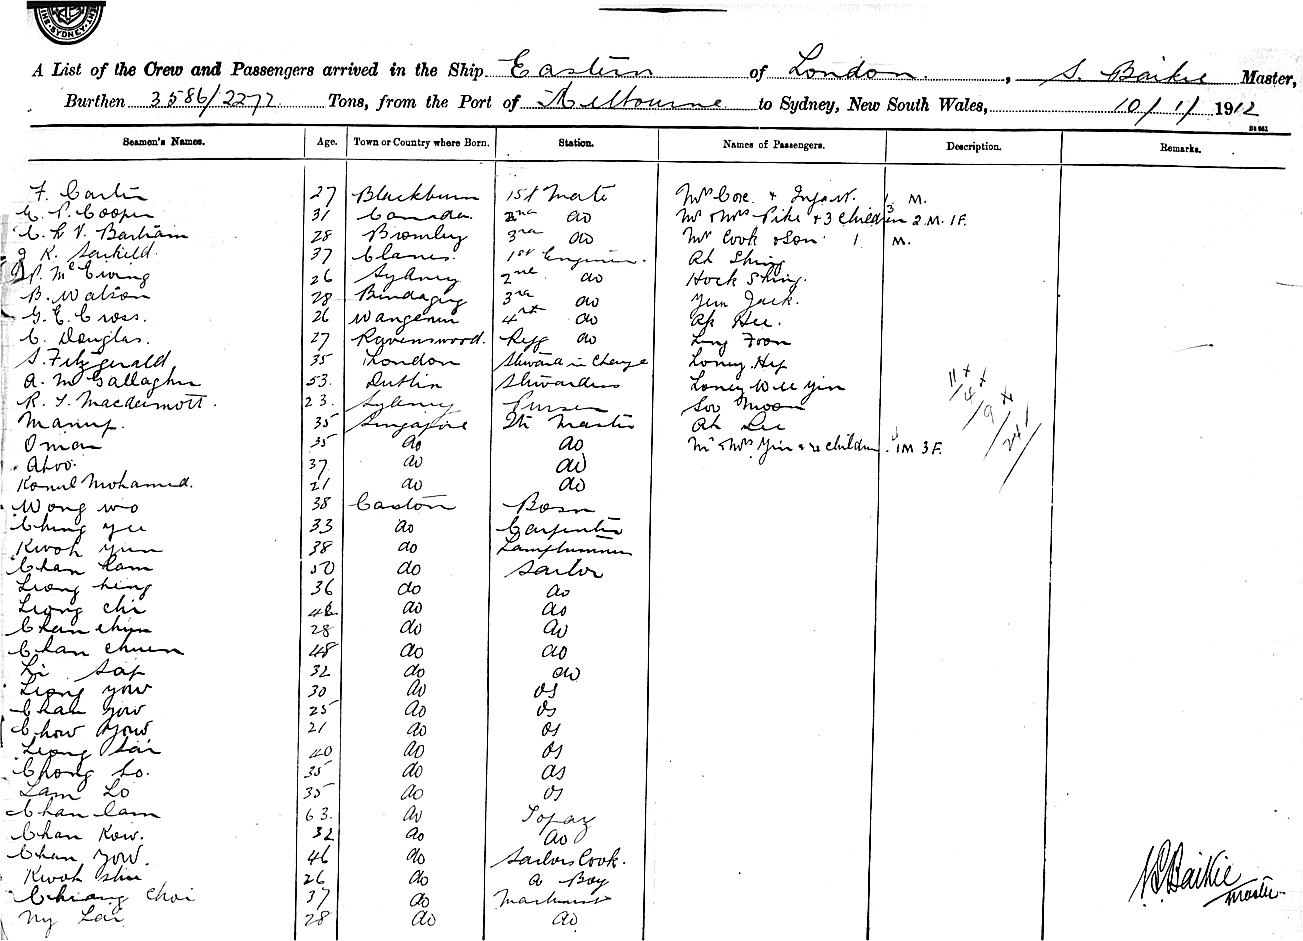 SYDNEY
A List of the Crew and Passengers arrived in the Ship Eastern of London, S. Baikie Master,
Burthen 3586/2272 Tons, from the Port of Melbourne to Sydney, New South Wales, 10/1/1912
Seamen's Names. Age. Town or Country where Born. Station. Names of Passengers. Description. Remarks.
F. Carlin 27 Blackburn 1st Mate Mrs Coe. & Infant. 1 M.
C. P. Cooper 31 Canada. 2nd do Mr & Mrs Pike & 3 Children 3 2 M. 1 F.
C. L. V. Barham 28 Bromley 3rd do Mr Cook & Son 1 M.
J. K. 37 1st Engineer. Ah Shing
P. McEwing 26 Sydney 2nd do Hock Shing.
B. Watson 28 3rd do Yum Jack.
G. E. Cross. 26 4th do Ah Hee.
C. Douglas. 27 Ravenswood. Refg do Ling Foon
S. Fitzgerald 35 London Steward in Charge Loney Hip
A. McGallagher 53. Dublin Stewardess Loney Wee Yin
R. T. Macdermott. 23. Sydney Purser Soo Moon
35 Singapore Qtr Master Ah Lee
Oman 35 do do Mr & Mrs Yin & children 4 1 M 3 F.
37 do do
Mohamed. 21 do do
Wong Wo 38 Canton Bosn
Ching Yee 33 do Carpenter
Kwok Yum 38 do Lamptrimmer
Chan Cam 50 do Sailor
Leong Hing 36 do do
Leong Chi do do
Chan Chun 28 do do
Chan Chuen 48 do do
Li Sap 32 do do
Leong Yow 30 do OS
Chan Yow 25 do OS
Chow Yow 21 do OS
Leong Sai 40 do OS
Chong So. 35 do OS
Lam Lo 35 do OS
Chan Cam 63. do Topaz
Chan Kow. 32 do do
Chan Yow. 46 do Sailors Cook.
Kwok Shu 26 do do Boy
Chiang Choi 37 do
Ny Lai 28 do do
S. Baikie
Master